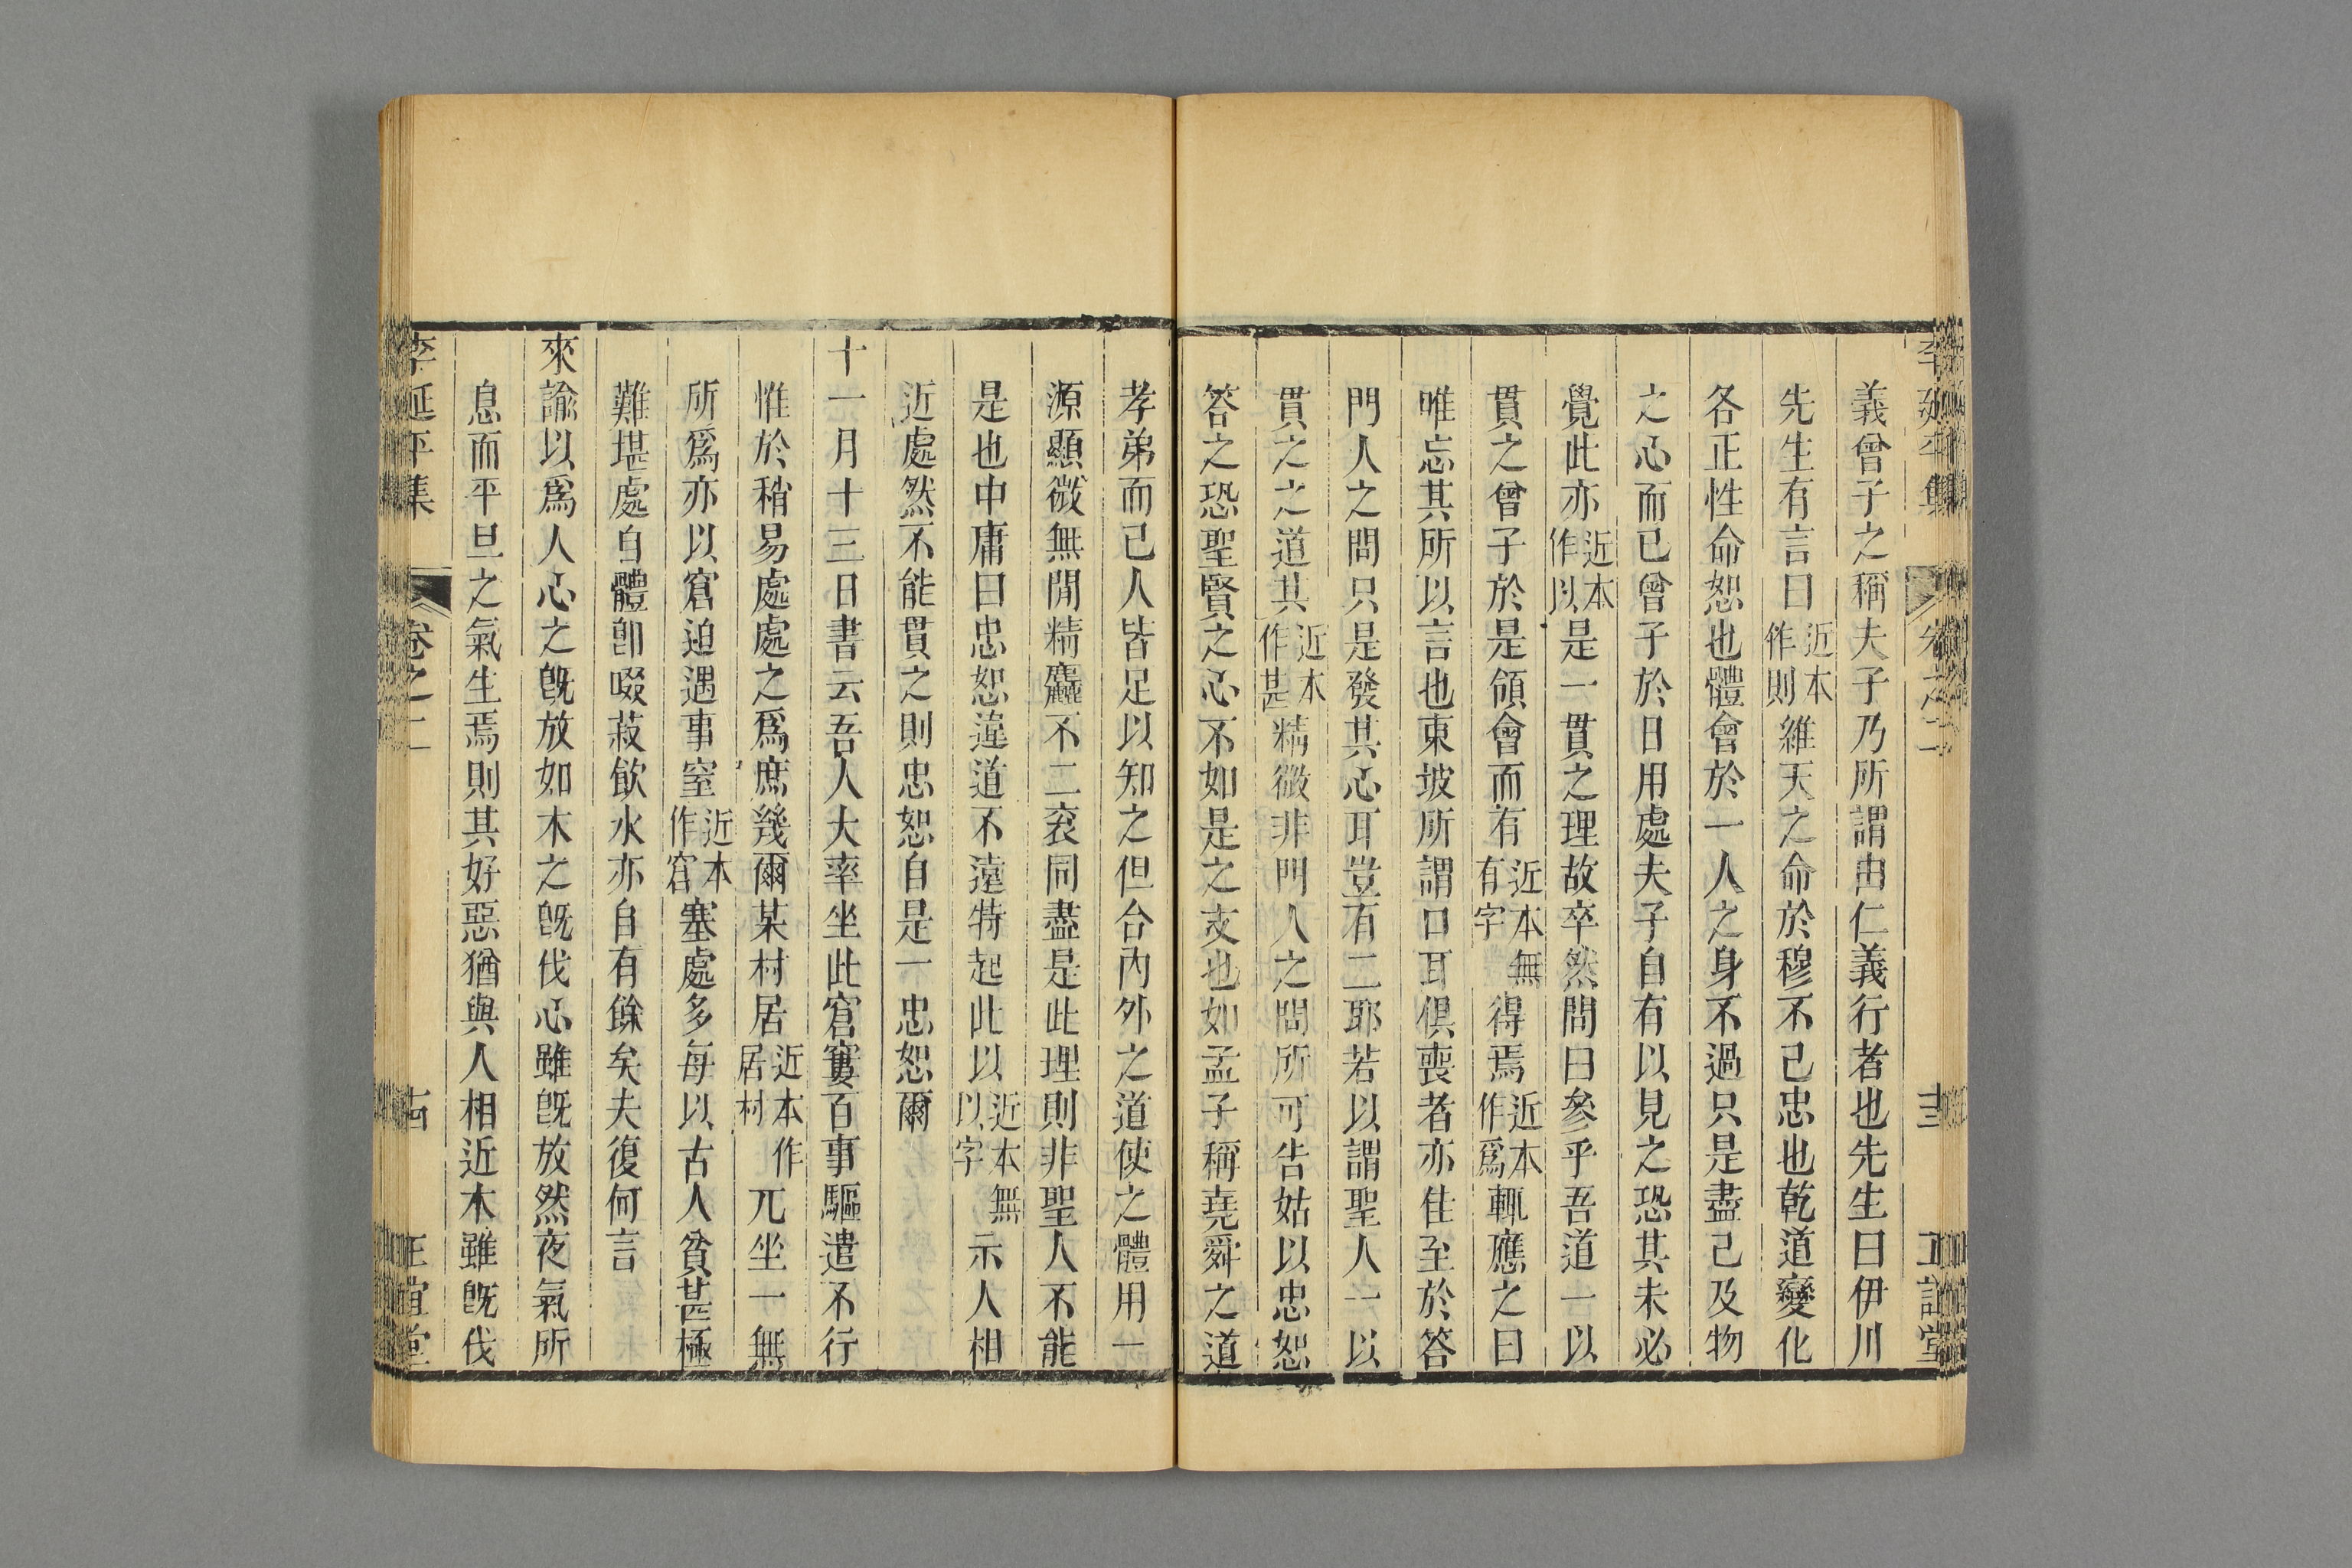 義曾子之稱夫子乃所謂由仁義行者也先生曰伊川
先生有言曰近本作則維天之命於穆不已忠也乾道變化
各正性命恕也體會於一人之身不過只是盡己及物
之心而已曾子於日用處夫子自有以見之恐其未必
覺此亦近本作以是一貫之理故卒然問曰參乎吾道一以
貫之曾子於是領會而有近本無有字得焉近本作爲輒應之曰
唯忘其所以言也東坡所謂口耳俱喪者亦佳至於答
門人之問只是發其心耳豈有二耶若以謂聖人一以
貫之之道其近本作甚精微非門人之問所可告姑以忠恕
答之恐聖賢之心不如是之支也如孟子稱堯舜之道
孝弟而已人皆足以知之但合內外之道使之體用一
源顯微無閒精麤不二衮同盡是此理則非聖人不能
是也中庸曰忠恕違道不遠特起此以近本無以字示人相
近處然不能貫之則忠恕自是一忠恕爾
十一月十三日書云吾人大率坐此窘窶百事驅遣不行
惟於稍易處處之爲庶幾爾某村居近本作居村兀坐一無
所爲亦以窘迫遇事窒近本作窘塞處多每以古人貧甚極
難堪處自體卽啜菽飮水亦自有餘矣夫復何言
來諭以爲人心之旣放如木之旣伐心雖旣放然夜氣所
息而平旦之氣生焉則其好惡猶與人相近木雖旣伐
李延平集
卷之二